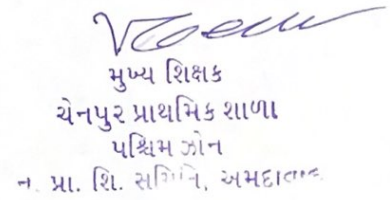 મુખ્ય શિક્ષક
ચેનપુર પ્રાથમિક શાળા
પશ્ચિમ ઝોન
ન. પ્રા. શિ. સમિતિ, અમદાવાદ